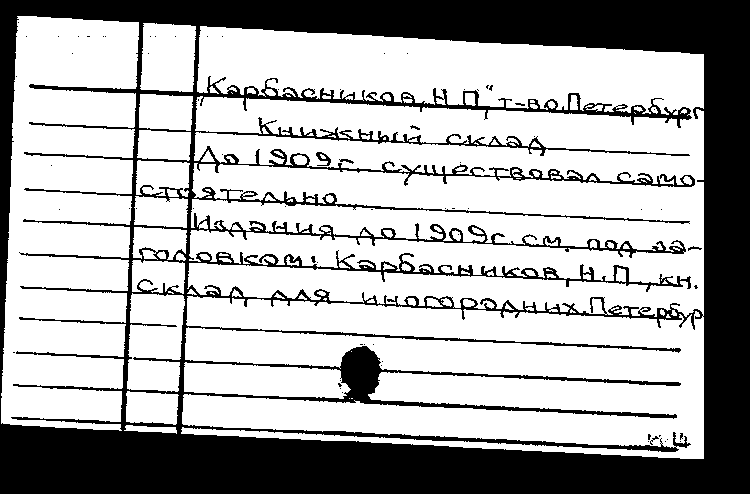 „Карбасников, Н.П.", т-во. Петербург
Книжный склад
До 1909г. существовал само-
стоятельно.
Издания до 1909г. см. под за-
головком: Карбасников, Н.П., кн.
склад для иногородних. Петербур